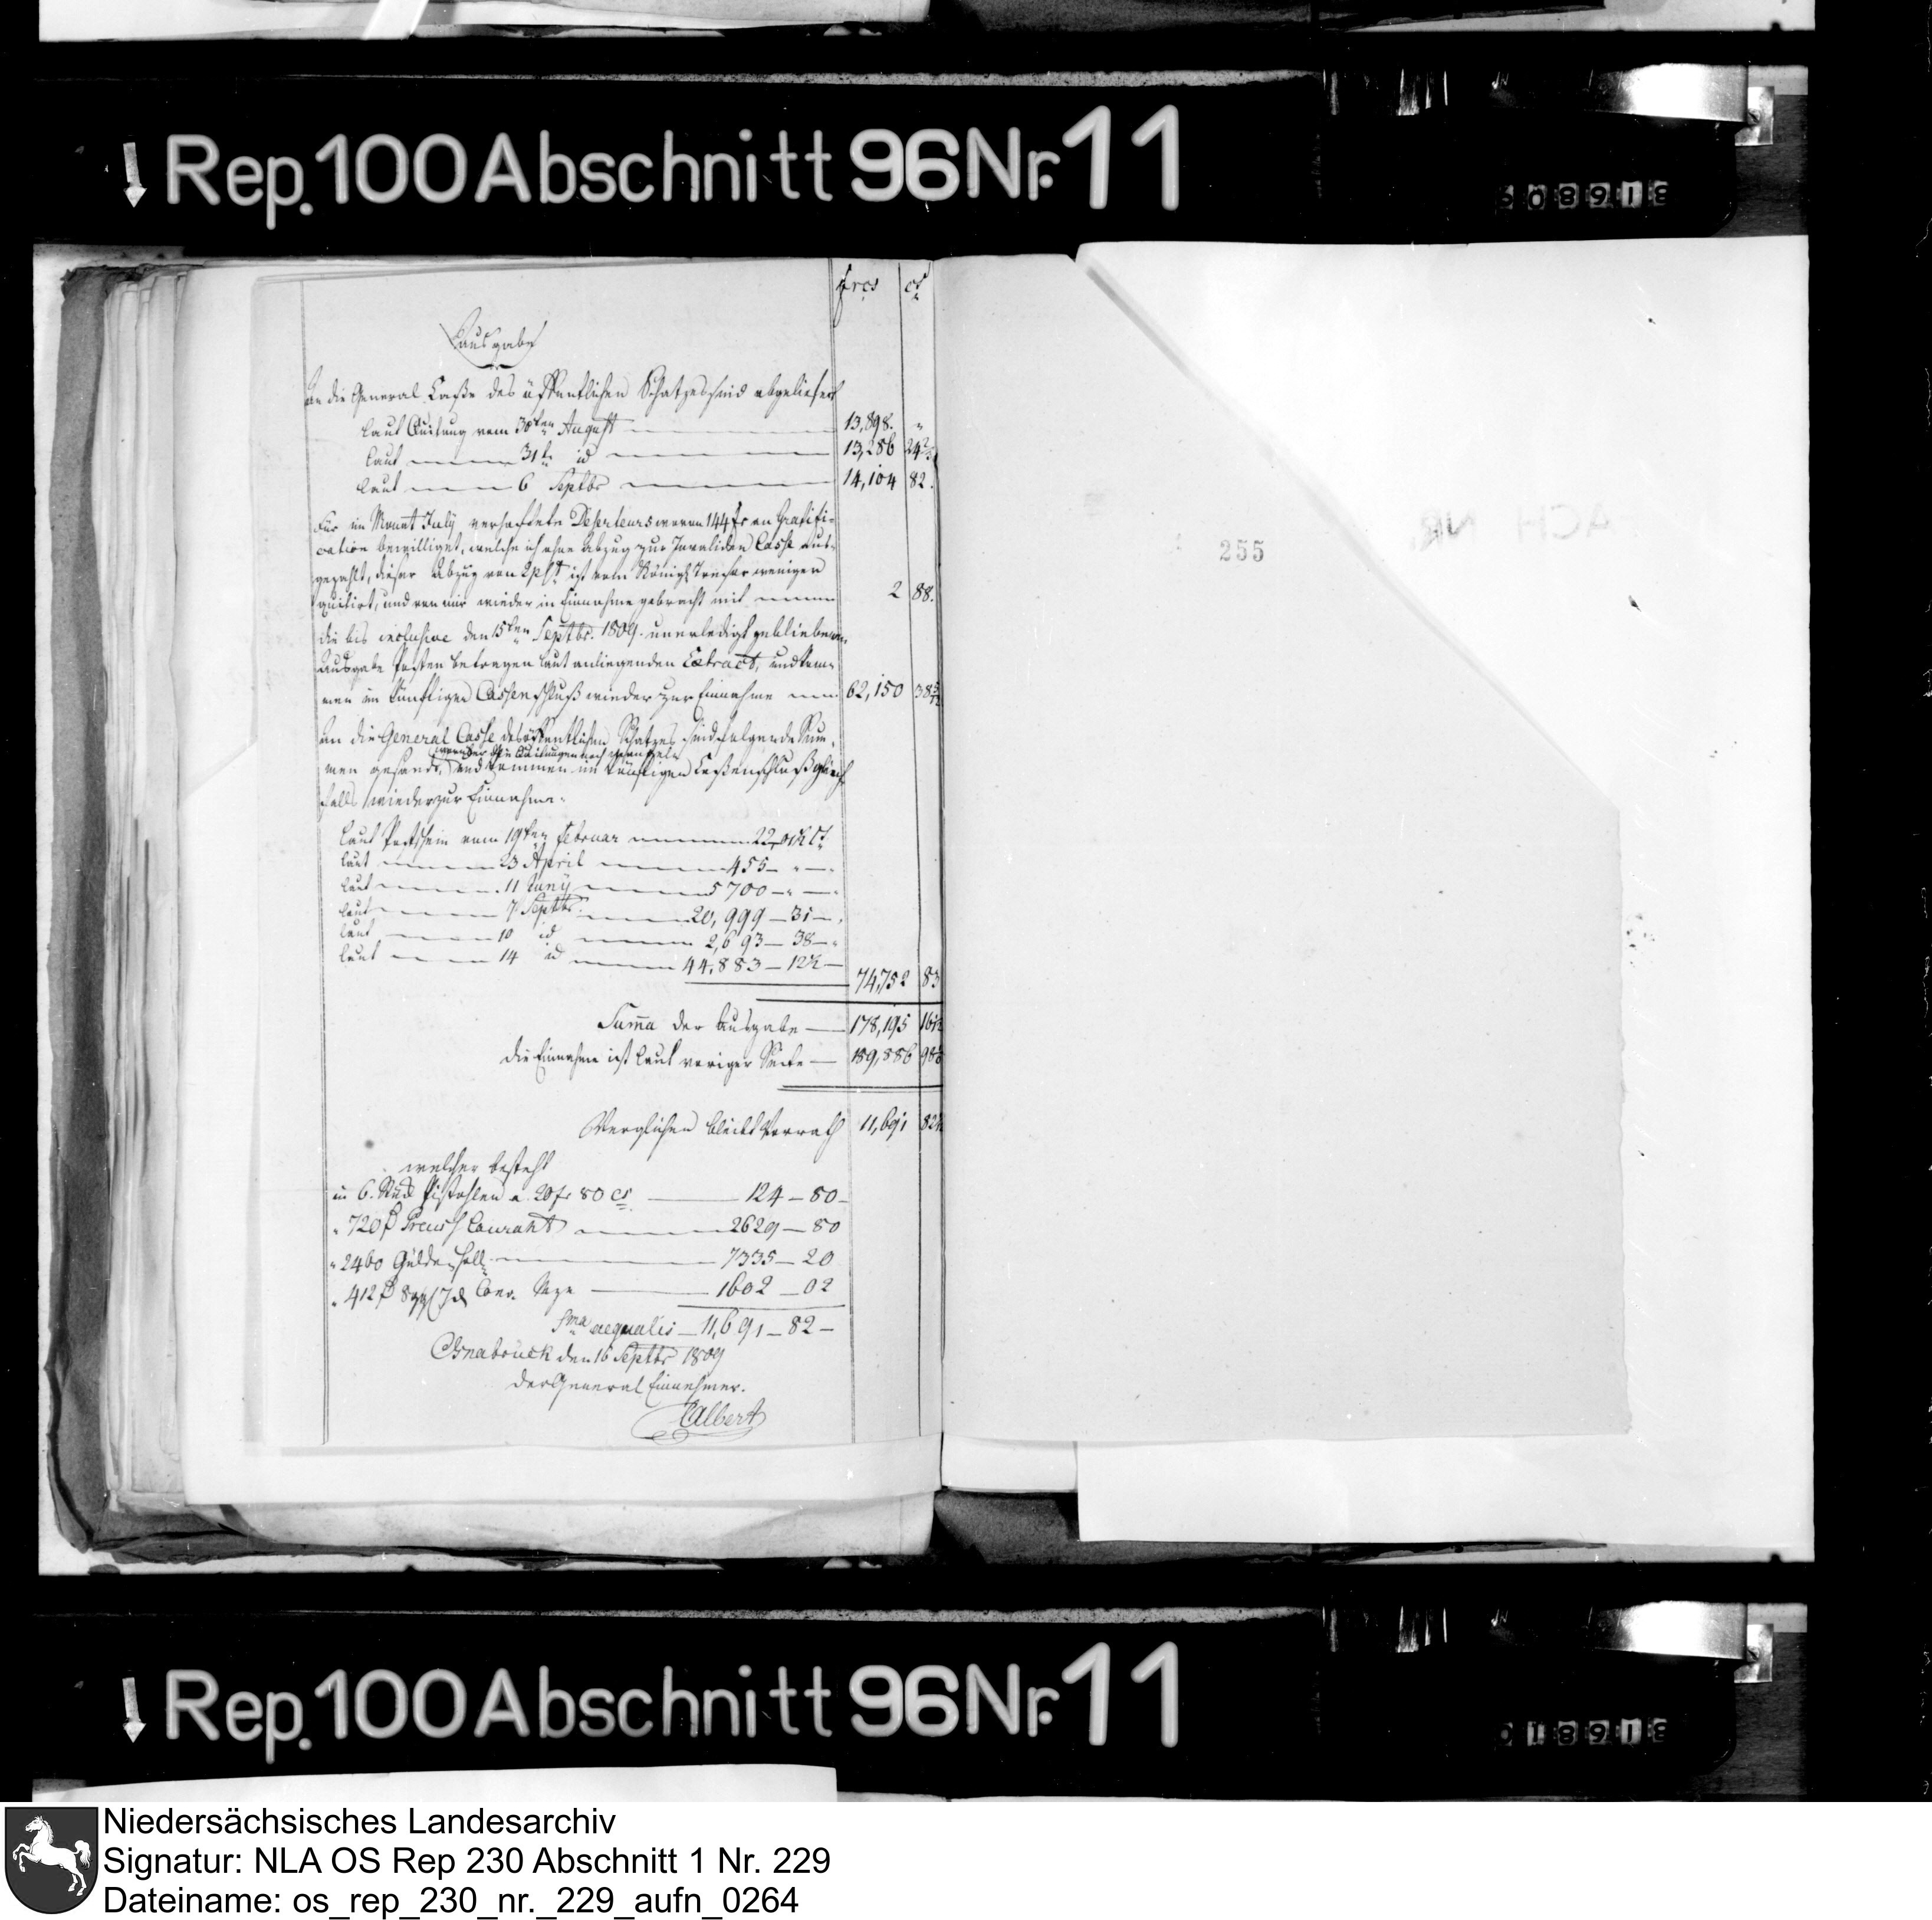 Rep. 100 Abschnitt 96 Nr. 11
frcs cs
Ausgabe
An die General Casse des öffentlichen Schatzes sind abgeliefert
laut Quitung vom 30ten August 13,898. "
laut 31t id 13,286 24
laut 6 Septbr 14,104 82.
Für im Monat July verhaftete Deserteurs waren 144 fr an Gratifi=
cation bewilliget, welche ich ohne Abzug zur Invaliden Casse aus=
gezahlt, dieser Abzug von 2 pCt ist vom Königl. Tresor weniger
quitirt, und von mir wieder in Einnahme gebracht mit 2 88.
die bis inclusive den 15ten Septbr. 1809. unerledigt gebliebenen
Ausgabe Posten betragen laut anliegenden Extract, und kom=
men im künftigen Cassenschluß wieder zur Einnahme 62,150 38
An die General Casse des öffentlichen Schatzes sind folgende Sum=
worüber die Quitungen noch
men gesandt, und kommen im künftigen Cassenschluß gleich=
falls wieder zur Einnahme.
laut Postschein vom 19ten Februar 22
laut 23 April 455 "
laut 11 Juny 5700 "
laut 7 Septbr. 20,999 - 31
laut 10 id 2,693 - 38
laut 14 id 44,883 - 12½
74,752 83
Summa der Ausgabe 178,195 16
die Einnahme ist laut voriger Seite 189,886 98
Verglichen bleibt Vorrath 11,691 82
welcher besteht
in 6. Stück Pistolen a 20 fr 80 cs 124 - 80
" 720 Preuss. Courant 2629 - 80
" 2460 Gulden holl. 7335 - 20
" 412 8 7 Conv. Mze 1602 - 02
Sma aequalis 11,691 - 82
Osnabruck den 16 Septbr 1809
der General Einnehmer.
Albert
255
Rep. 100 Abschnitt 96 Nr. 11
Niedersächsisches Landesarchiv
Signatur: NLA OS Rep 230 Abschnitt 1 Nr. 229
Dateiname: os_rep_230_nr._229_aufn_0264